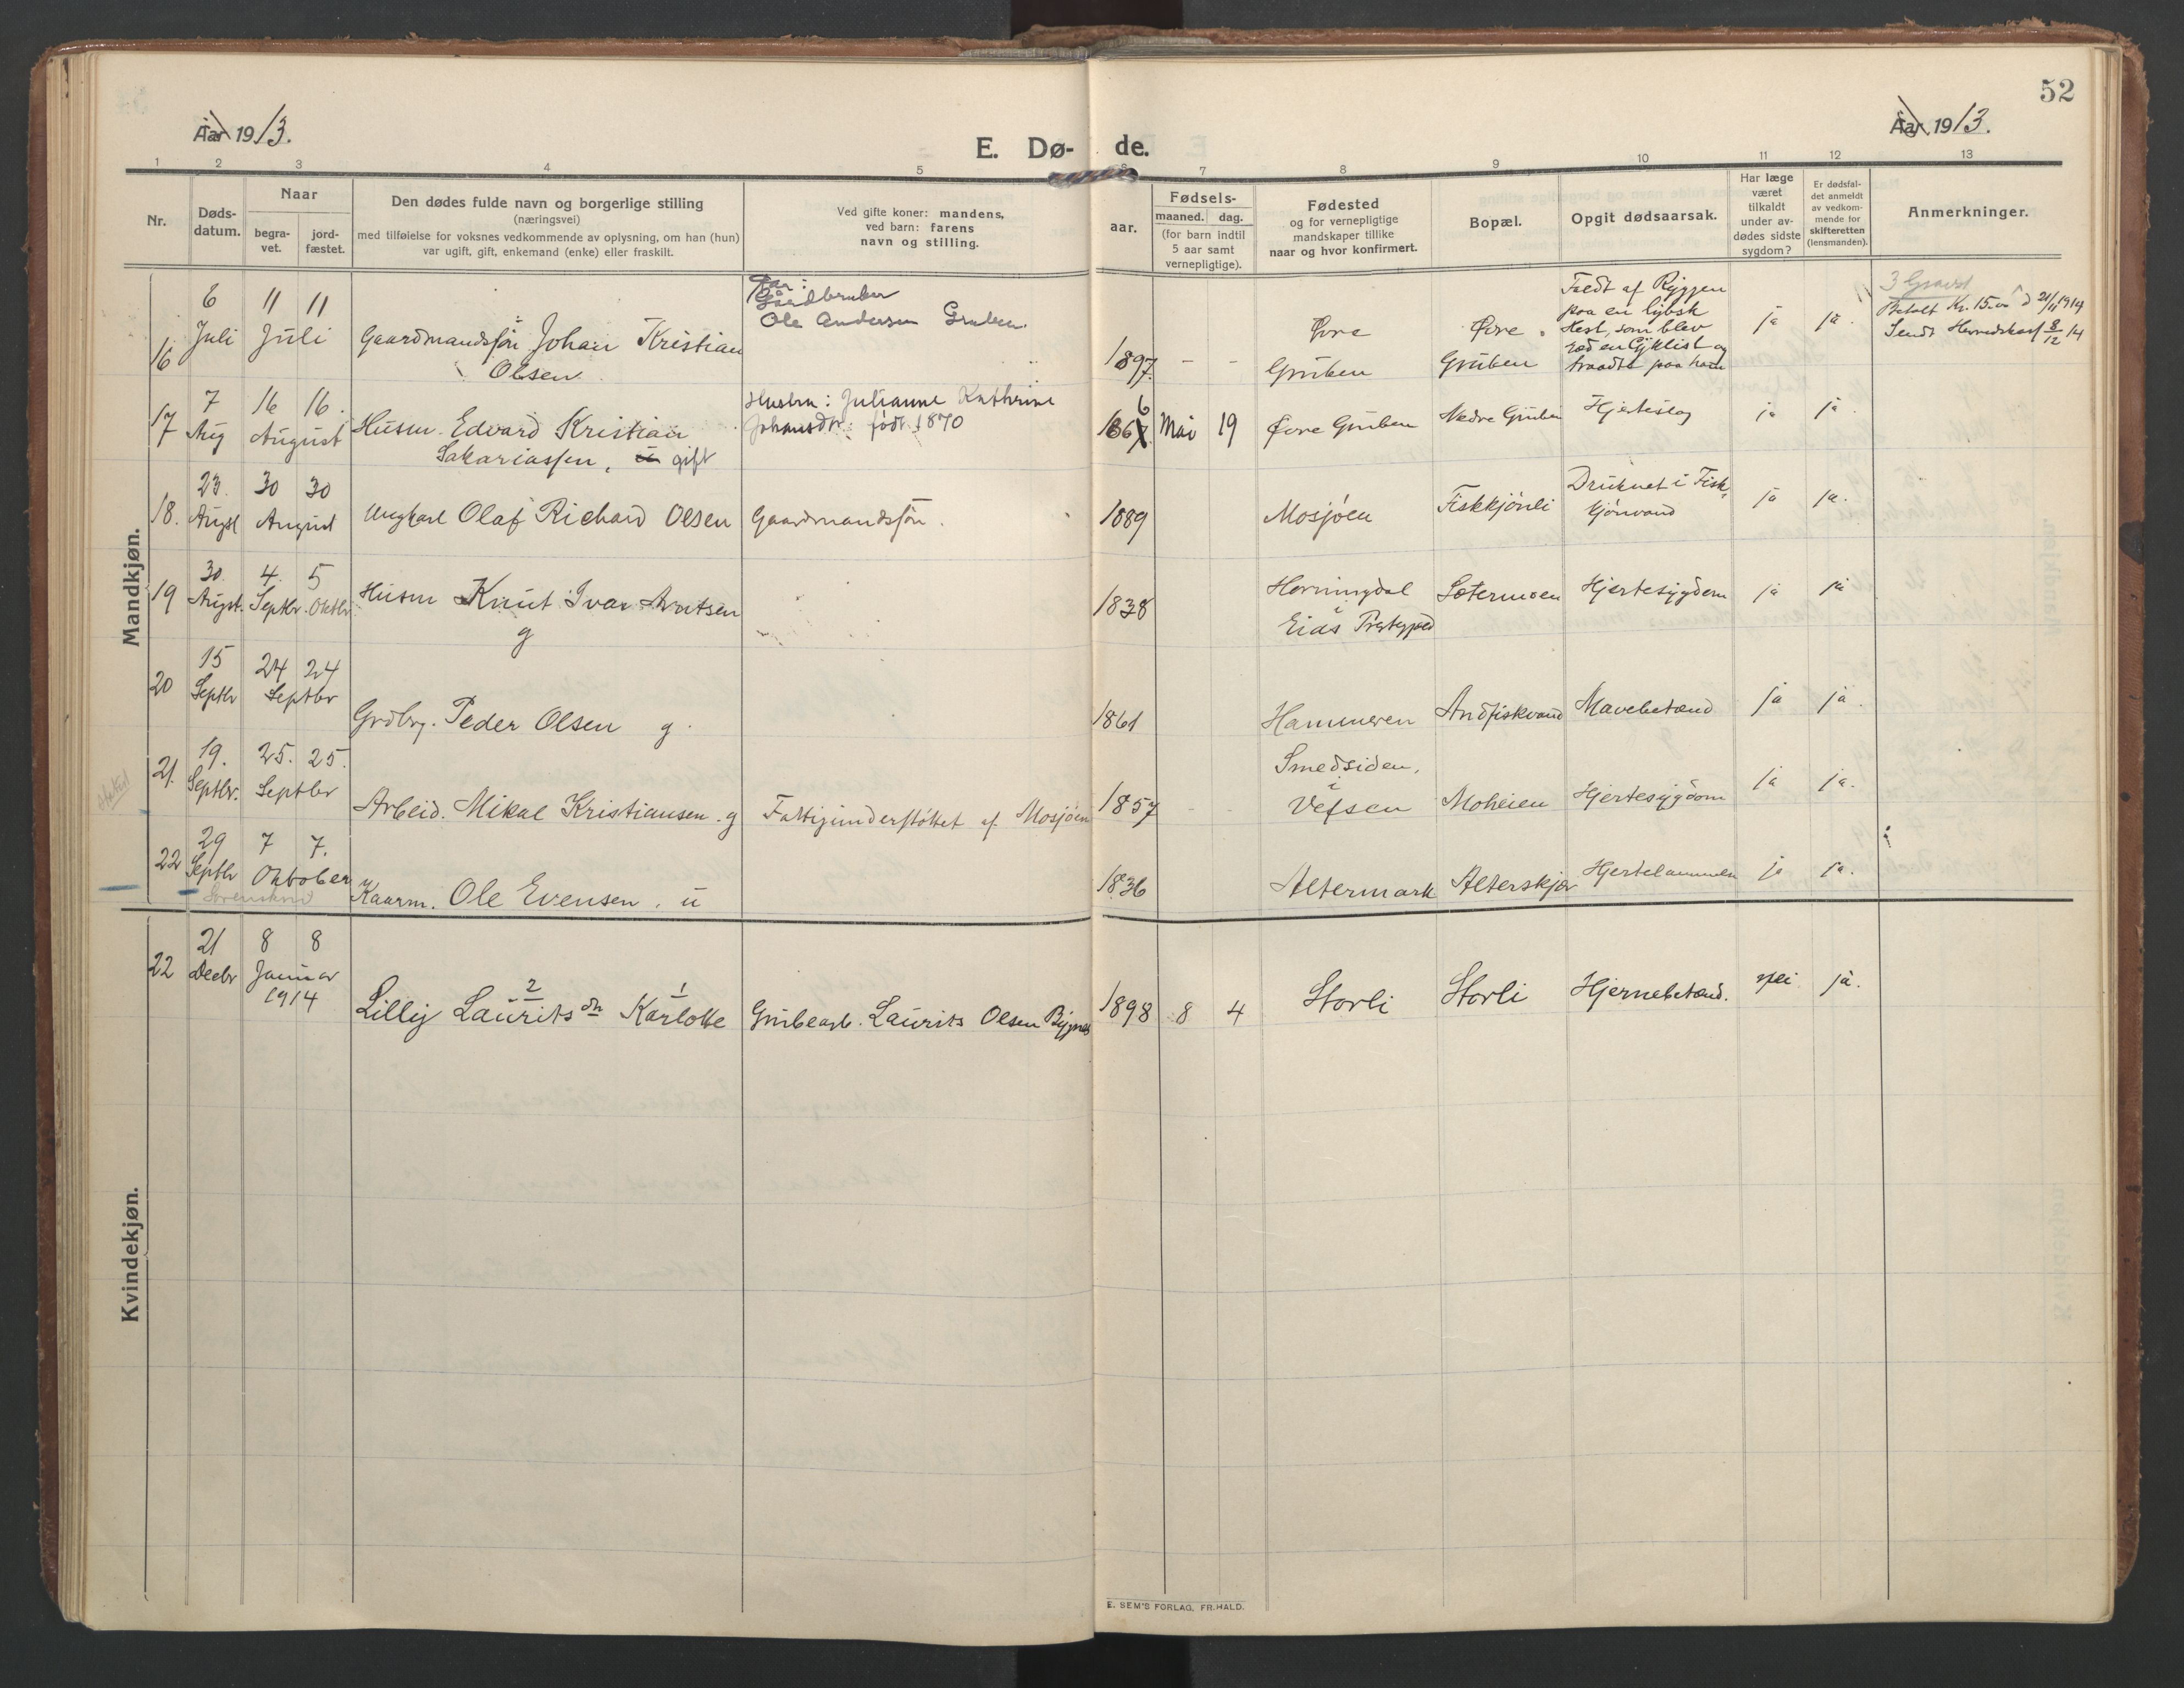 52
Aar 1913.
E. Dø- de.
Aar 1913.
1 2 3 4 5 6 7 8 9 10 11 12 13
Nr.
Døds-
datum.
Naar
begra-
vet.
jord-
fæstet.
Den dødes fulde navn og borgerlige stilling
(næringsvei)
med tilføielse for voksnes vedkommende av oplysning, om han (hun)
var ugift, gift, enkemand (enke) eller fraskilt.
Ved gifte koner: mandens,
ved barn: farens
navn og stilling.
Fødsels-
aar.
maaned. dag.
(for barn indtil
5 aar samt
vernepligtige).
Fødested
og for vernepligtige
mandskaper tillike
naar og hvor konfirmert.
Bopæl.
Opgit dødsaarsak.
Har læge
været
tilkaldt
under av-
dødes sidste
sygdom?
Er dødsfal-
det anmeldt
av vedkom-
mende for
skifteretten
(lensmanden).
Anmerkninger.
Mandkjøn.
16
6
Juli
11 11
Juli
Gaardmandssøn Johan Kristian
Olsen
Far:
Gårdbruker
Ole Andersen Gruben.
1897. - -
Øvre
Gruben
Øvre
Gruben
Faldt af Ryggen
paa en lybsk
Hest, som blev
ræd en Cyklist og
traadte paa ham
ja ja.
3 Gravst
Betalt Kr. 15.00 d 21/11 1914
Sendt Herredskas 8/12 14
17
7
Aug
16 16.
August
Husm. Edvard Kristian
Sakariassen, u gift
Hustru: Julianne Kathrine
Johansdtr: født 1870
6
1867 Mai 19 Øvre Gruben Nedre Gruben Hjerteslag ja ja.
18.
23.
Augst
30 30
August
Ungkarl Olaf Richard Olsen Gaardmandssøn.
1889 Mosjöen Fiskkjönli
Druknet i Fisk-
kjönvand
ja ja.
19
30.
Augst.
4. 5
Septbr. Oktbr.
Husm Knut Ivar Arntsen
g
1838
Horningdal
Eids Prestegjeld
Sætermoen Hjertesygdom ja ja
20
15
Septbr
24 24
Septbr
Grdbrg. Peder Olsen g.
1861 Hammeren Andfiskvand Mavebetænd ja ja.
21.
19.
Septbr.
25. 25.
Septbr
Arbeid. Mikal Kristiansen. g Fattigunderstöttet af Mosjöen
1857 - -
Smedsiden,
i
Vefsen
Moheien Hjertesygdom ja ja.
22
29
Septbr
7 7.
Oktober
Kaarm. Ole Evensen. u
1836 Altermark Alterskjær Hjertelammelse ja ja.
Kvindekjøn.
22
21
Decbr
8 8
Januar
1914
2 1
Lilly Lauritsdtr Karlotte Grubearb. Laurits Olsen Bygnes
1898 8 4 Storli Storli Hjernebetænd. nei ja.
E. SEM'S FORLAG, FR.HALD.